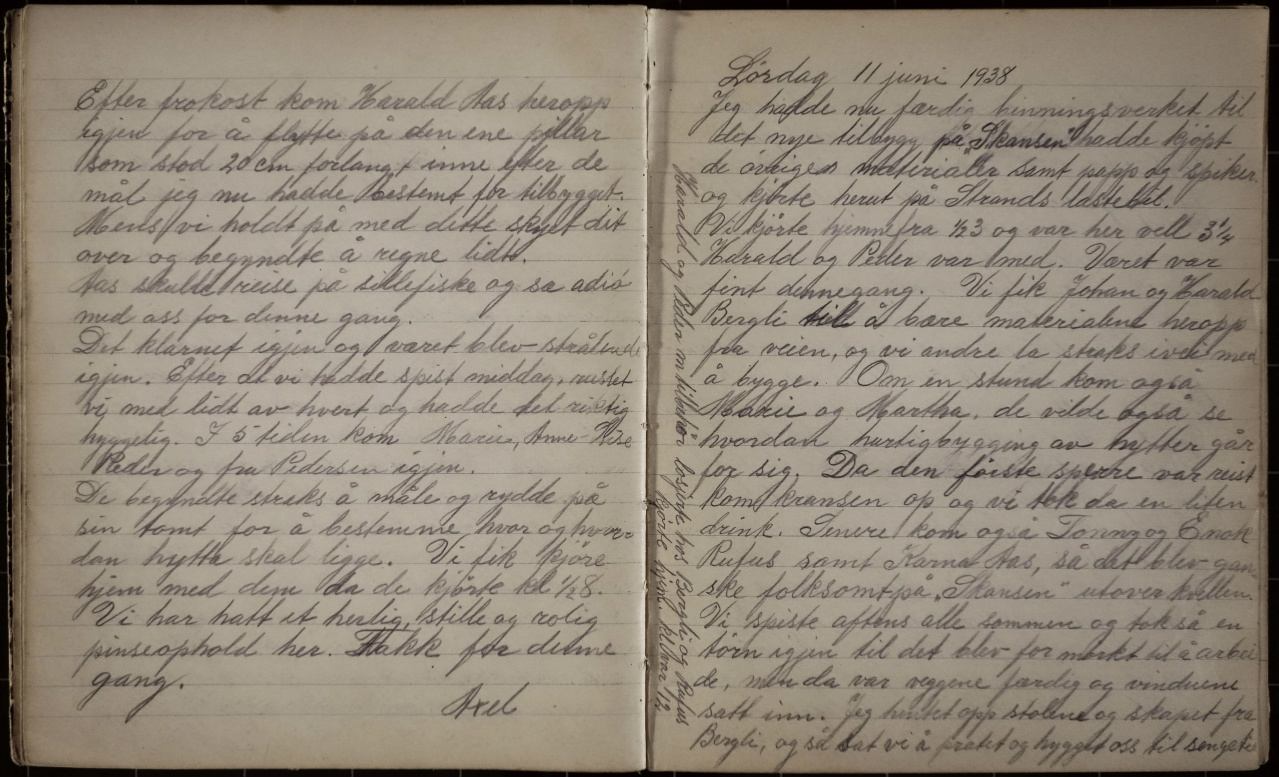 Efter frokost kom Harald Aas heropp
igjen for å flytte på den ene pillar
som stod 20 cm forlangt inne efter de
mål jeg nu hadde bestemt for tilbygget.
Mens vi holdt på med dette skyet dit
over og begyndte å regne lidt.
Aas skulle reise på sillefiske og sa adiö
med oss for denne gang.
Det klarnet igjen og været blev strålende
igjen. Efter at vi hadde spist middag, rustet
vi med lidt av hvert og hadde det riktig
hyggelig. I 5 tiden kom Marie, Anne-Lise
Peder og fru Pedersen igjen.
De begyndte straks å måle og rydde på
sin tomt for å bestemme hvor og hvor-
dan hytta skal ligge. Vi fik kjøre
hjem med dem da de kjörte kl ½8.
Vi har hatt et herlig, stille og rolig
pinseophold her. Takk for denne
gang.
Axel
Harald og Peder m tilbehör losjerte hos Bergli og Rufus
kjörte hjem kl. 12
Lördag 11 juni 1938
Jeg hadde nu færdig binningsverket til
det nye tilbygg på „Skansen" hadde kjöpt
de övrigen materialer samt papp og spiker.
og kjörte herut på Strands lastebil.
Vi kjörte hjemmefra ½3 og var her vell 3¼
Harald og Peder var med. Været var
fint denne gang. Vi fik Johan og Harald
Bergli till å bære materialene heropp
fra veien, og vi andre la straks ivei med
å bygge. Om en stund kom også
Marie og Martha. de vilde også se
hvordan hurtigbygging av hytter går
for sig. Da den förste sperre var reist
kom kransen op og vi tok da en liten
drink. Senere kom også Tonny og Enok
Rufus samt Karna Aas, så det blev gan-
ske folksomt på „Skansen" utover kvellen.
Vi spiste aftens alle sammen og tok så en
törn igjen til det blev for mörkt til å arbei-
de, men da var veggene færdig og vinduene
satt inn. Jeg hentet opp stolene og skapet fra
Bergli, og så sat vi å pratet og hygget oss til sengetid